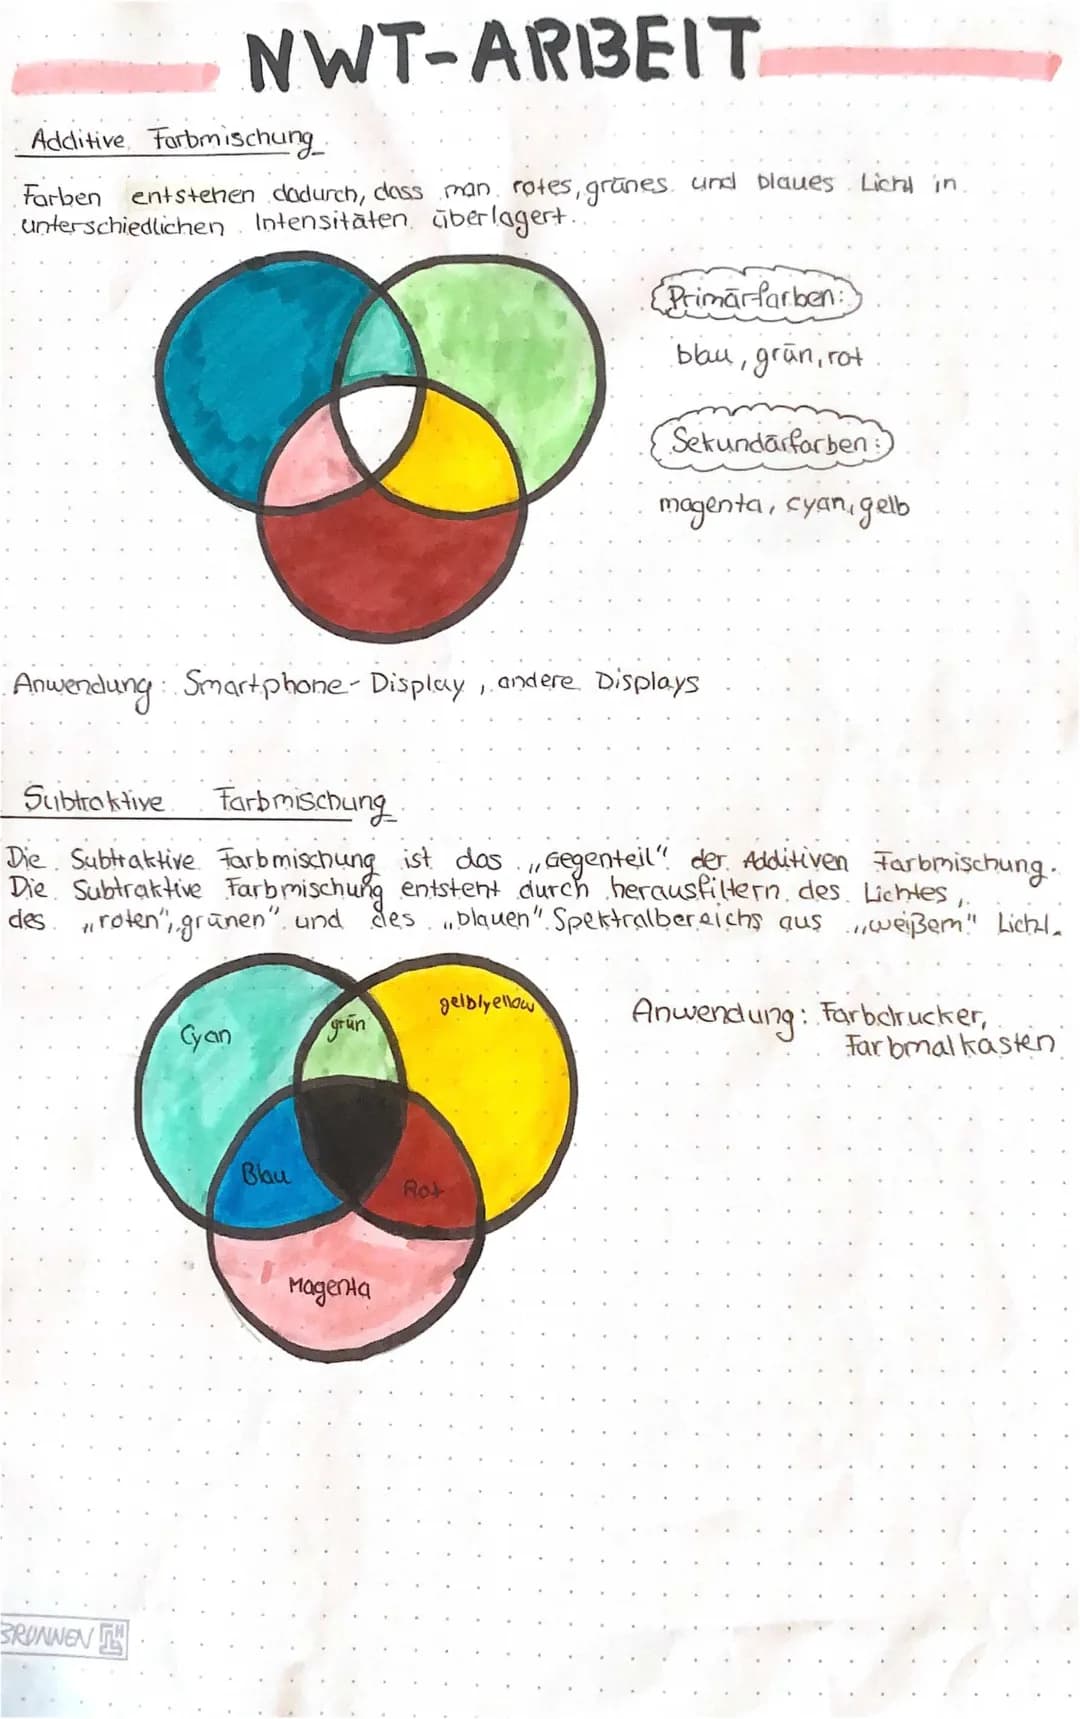 NWT-ARBEIT
Additive Farbmischung
Farben entstehen dadurch, dass man rotes, grünes und blaues Licht in
unterschiedlichen Intensitäten überlagert.
Primärfarben:
blau, grün, rot
Sekundärfarben:
magenta, cyan, gelb
Anwendung: Smartphone-Display, andere Displays
Subtraktive Farbmischung
Die Subtraktive Farbmischung ist das „Gegenteil" der Additiven Farbmischung.
Die Subtraktive Farbmischung entsteht durch herausfiltern des Lichtes,
des „roten", grünen" und des „blauen" Spektralbereichs aus „weißem" Licht.
Cyan
grün
gelb/yellow
Blau
Rot
Magenta
Anwendung: Farbdrucker,
Farbmalkasten
BRUNNEN